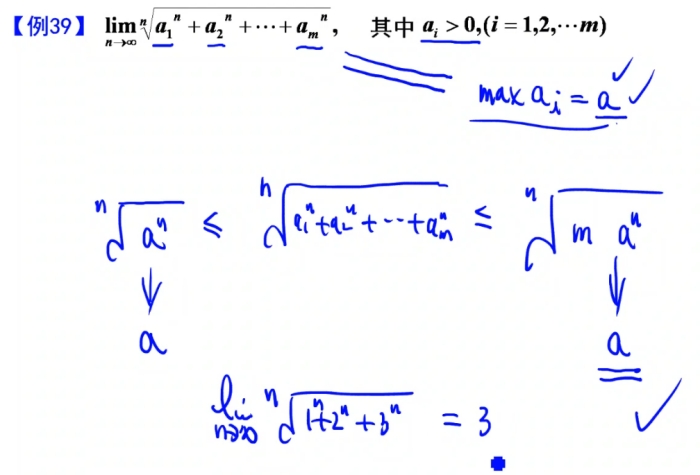 【例39】 lim_{n→∞} \sqrt[n]{a_1^n + a_2^n + ⋯ + a_m^n}, 其中 a_i > 0, (i = 1,2,⋯m)
max a_i = a ✓ ✓
\sqrt[n]{a^n} ≤ \sqrt[n]{a_1^n + a_2^n + ⋯ + a_m^n} ≤ \sqrt[n]{m a^n}
↓ ↓
a a
lim_{n→∞} \sqrt[n]{1^n + 2^n + 3^n} = 3 ✓